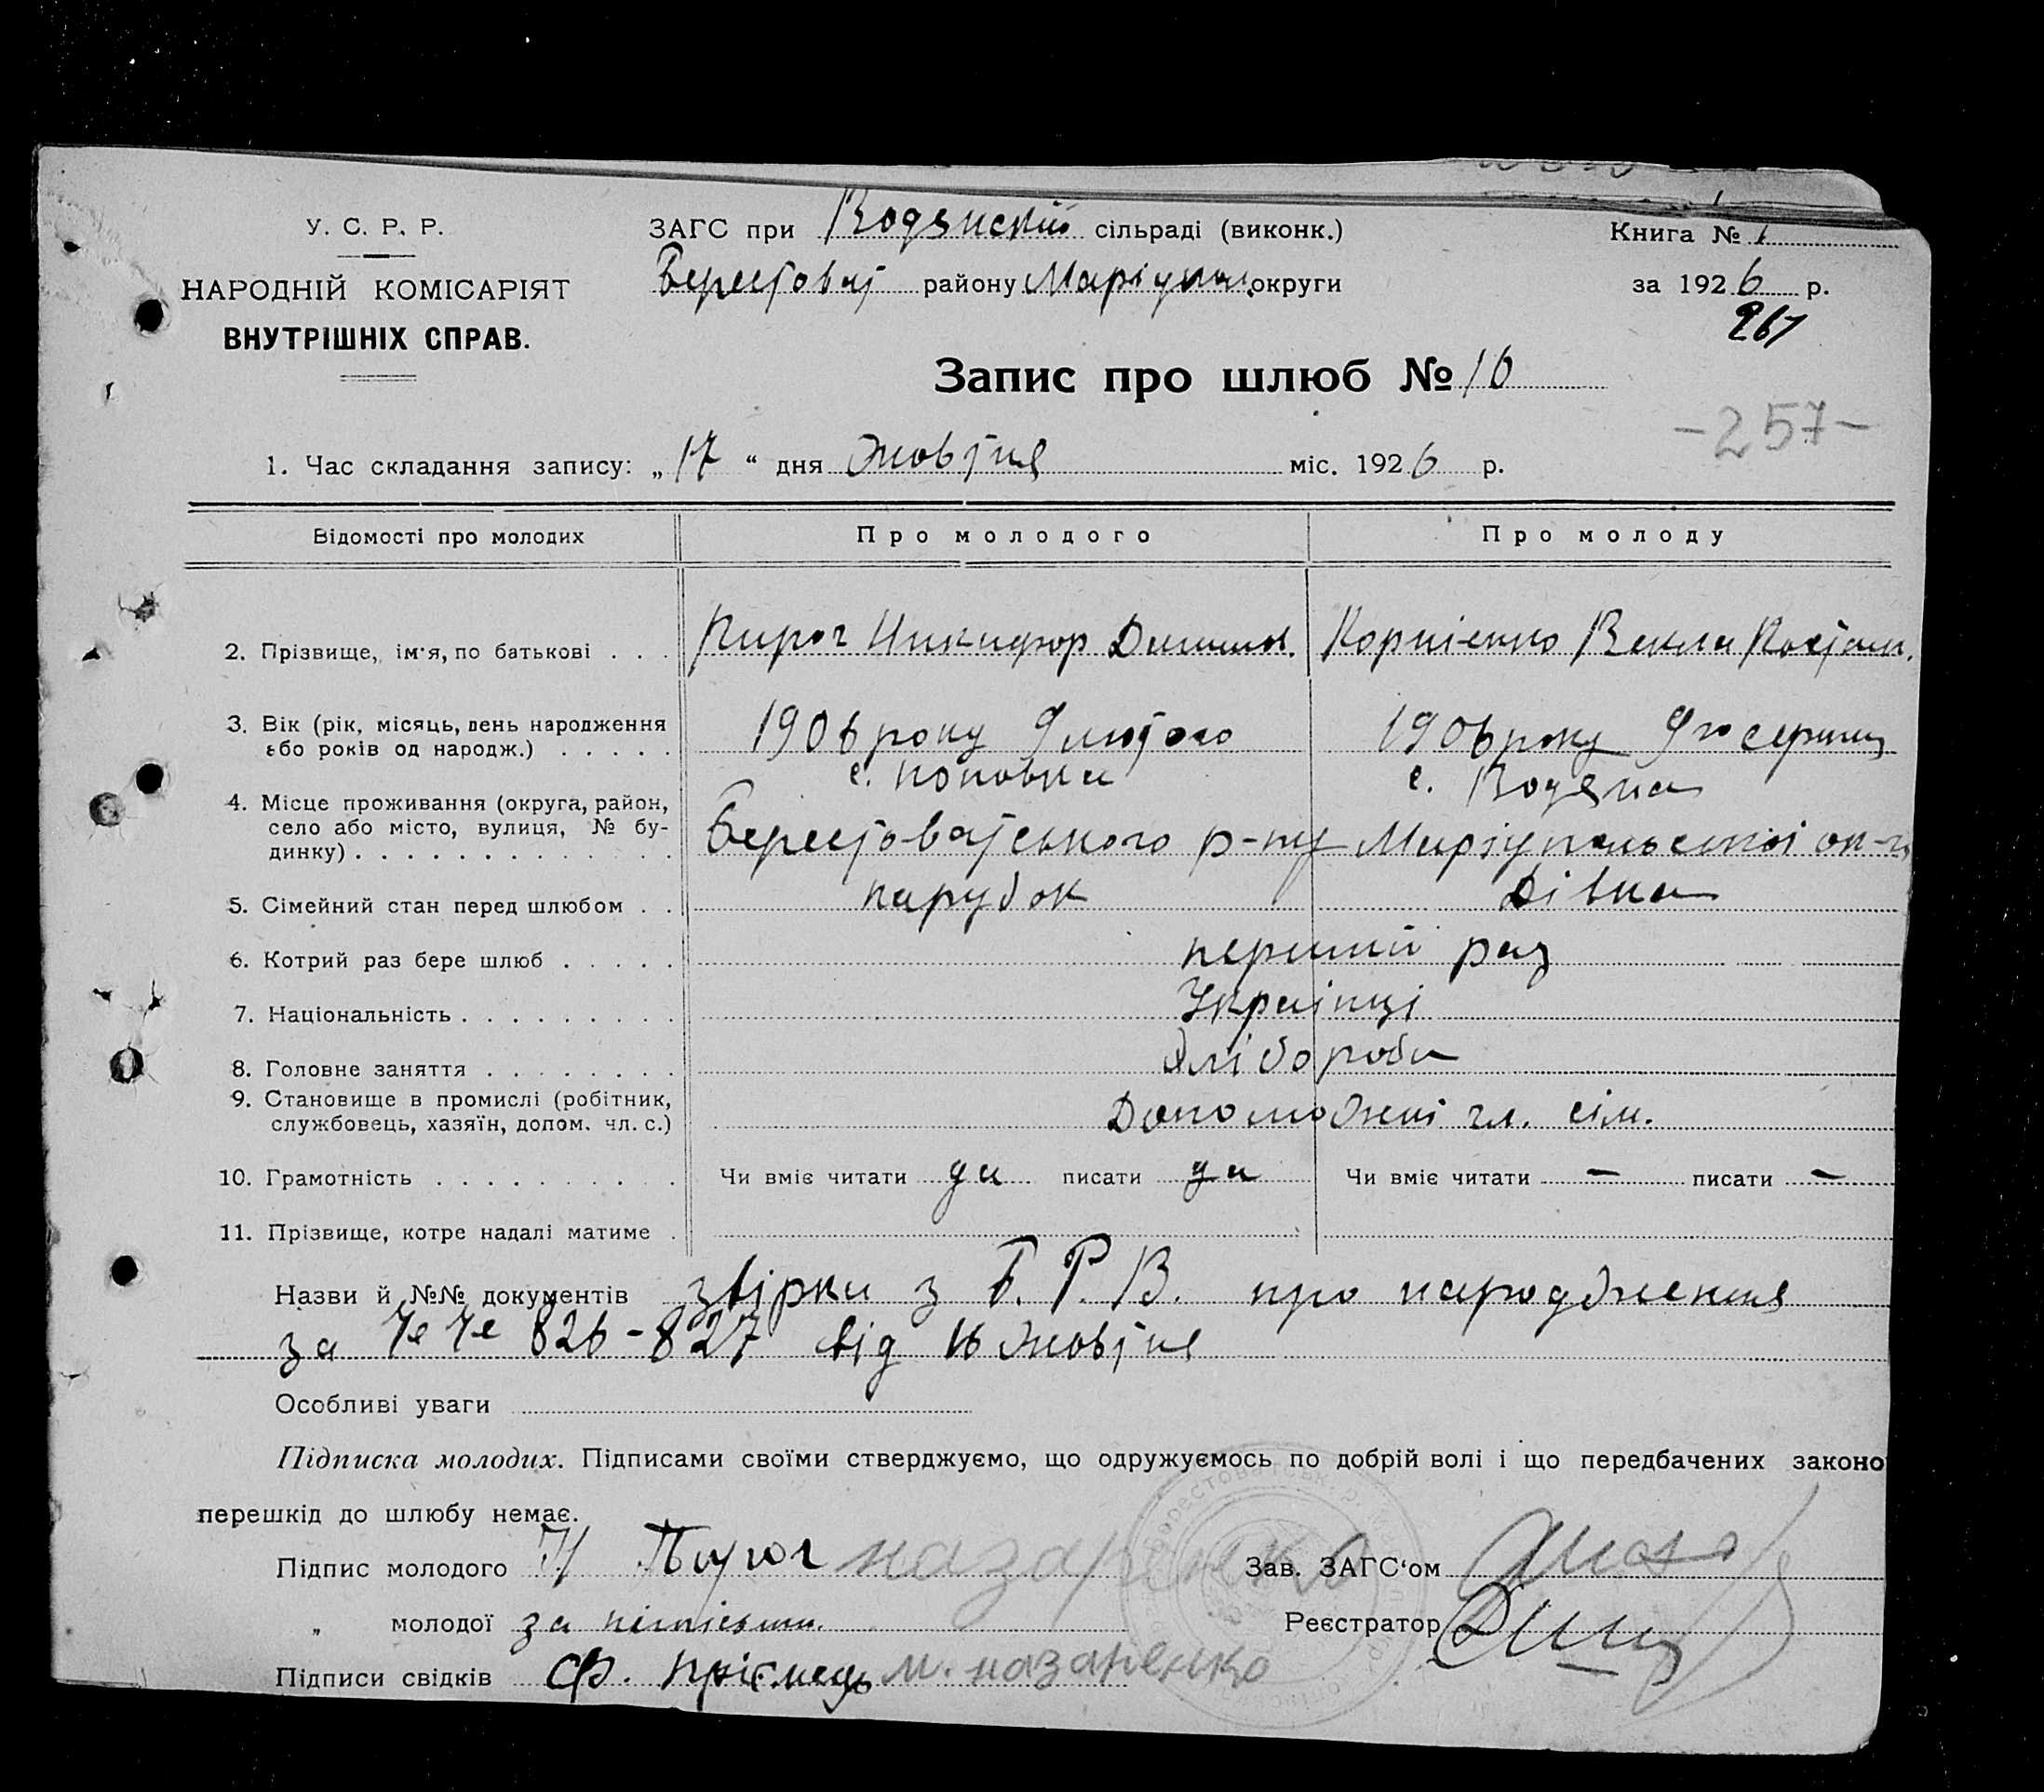 У. С. Р. Р.
НАРОДНІЙ КОМІСАРІЯТ
ВНУТРІШНІХ СПРАВ.
ЗАГС при Водянскій сільраді (виконк.)
Берестоват району Маріупол. округи
Книга № 1
за 1926 р.
261
Запис про шлюб № 16
-257-
1. Час складання запису: „17" дня Жовтня міс. 1926 р.
Відомості про молодих Про молодого Про молоду
2. Прізвище, ім'я, по батькові . . . Пирог Никифор Корнієнко Векла Костан.
3. Вік (рік, місяць, день народження або років од народж.) . . . . . 1906 року 9 лютого 1906 року 9го серпня
с. Поповка с. Водяна
4. Місце проживання (округа, район,
село або місто, вулиця, № бу-
динку) . . . . . . . . . . . . Берестоватського р-ну Маріупольської ок-и
5. Сімейний стан перед шлюбом . . парубок Дівка
6. Котрий раз бере шлюб . . . . . перший раз
7. Національність . . . . . . . . . Українці
8. Головне заняття . . . . . . . . Хлібороби
9. Становище в промислі (робітник,
службовець, хазяїн, допом. чл. с.) Допоможні чл. сім.
10. Грамотність . . . . . . . . . . Чи вміє читати да писати да Чи вміє читати — писати —
11. Прізвище, котре надалі матиме .
Назви й №№ документів звірки з Б. Р. В. про народження
за №№ 826-827 від 16 Жовтня
Особливі уваги
Підписка молодих. Підписами своїми стверджуємо, що одружуємось по добрій волі і що передбачених законо
перешкід до шлюбу немає.
Підпис молодого Н Пирог назаренко Зав. ЗАГС'ом
„ молодої за Реєстратор
Підписи свідків Ф. Приємець м. назаренко